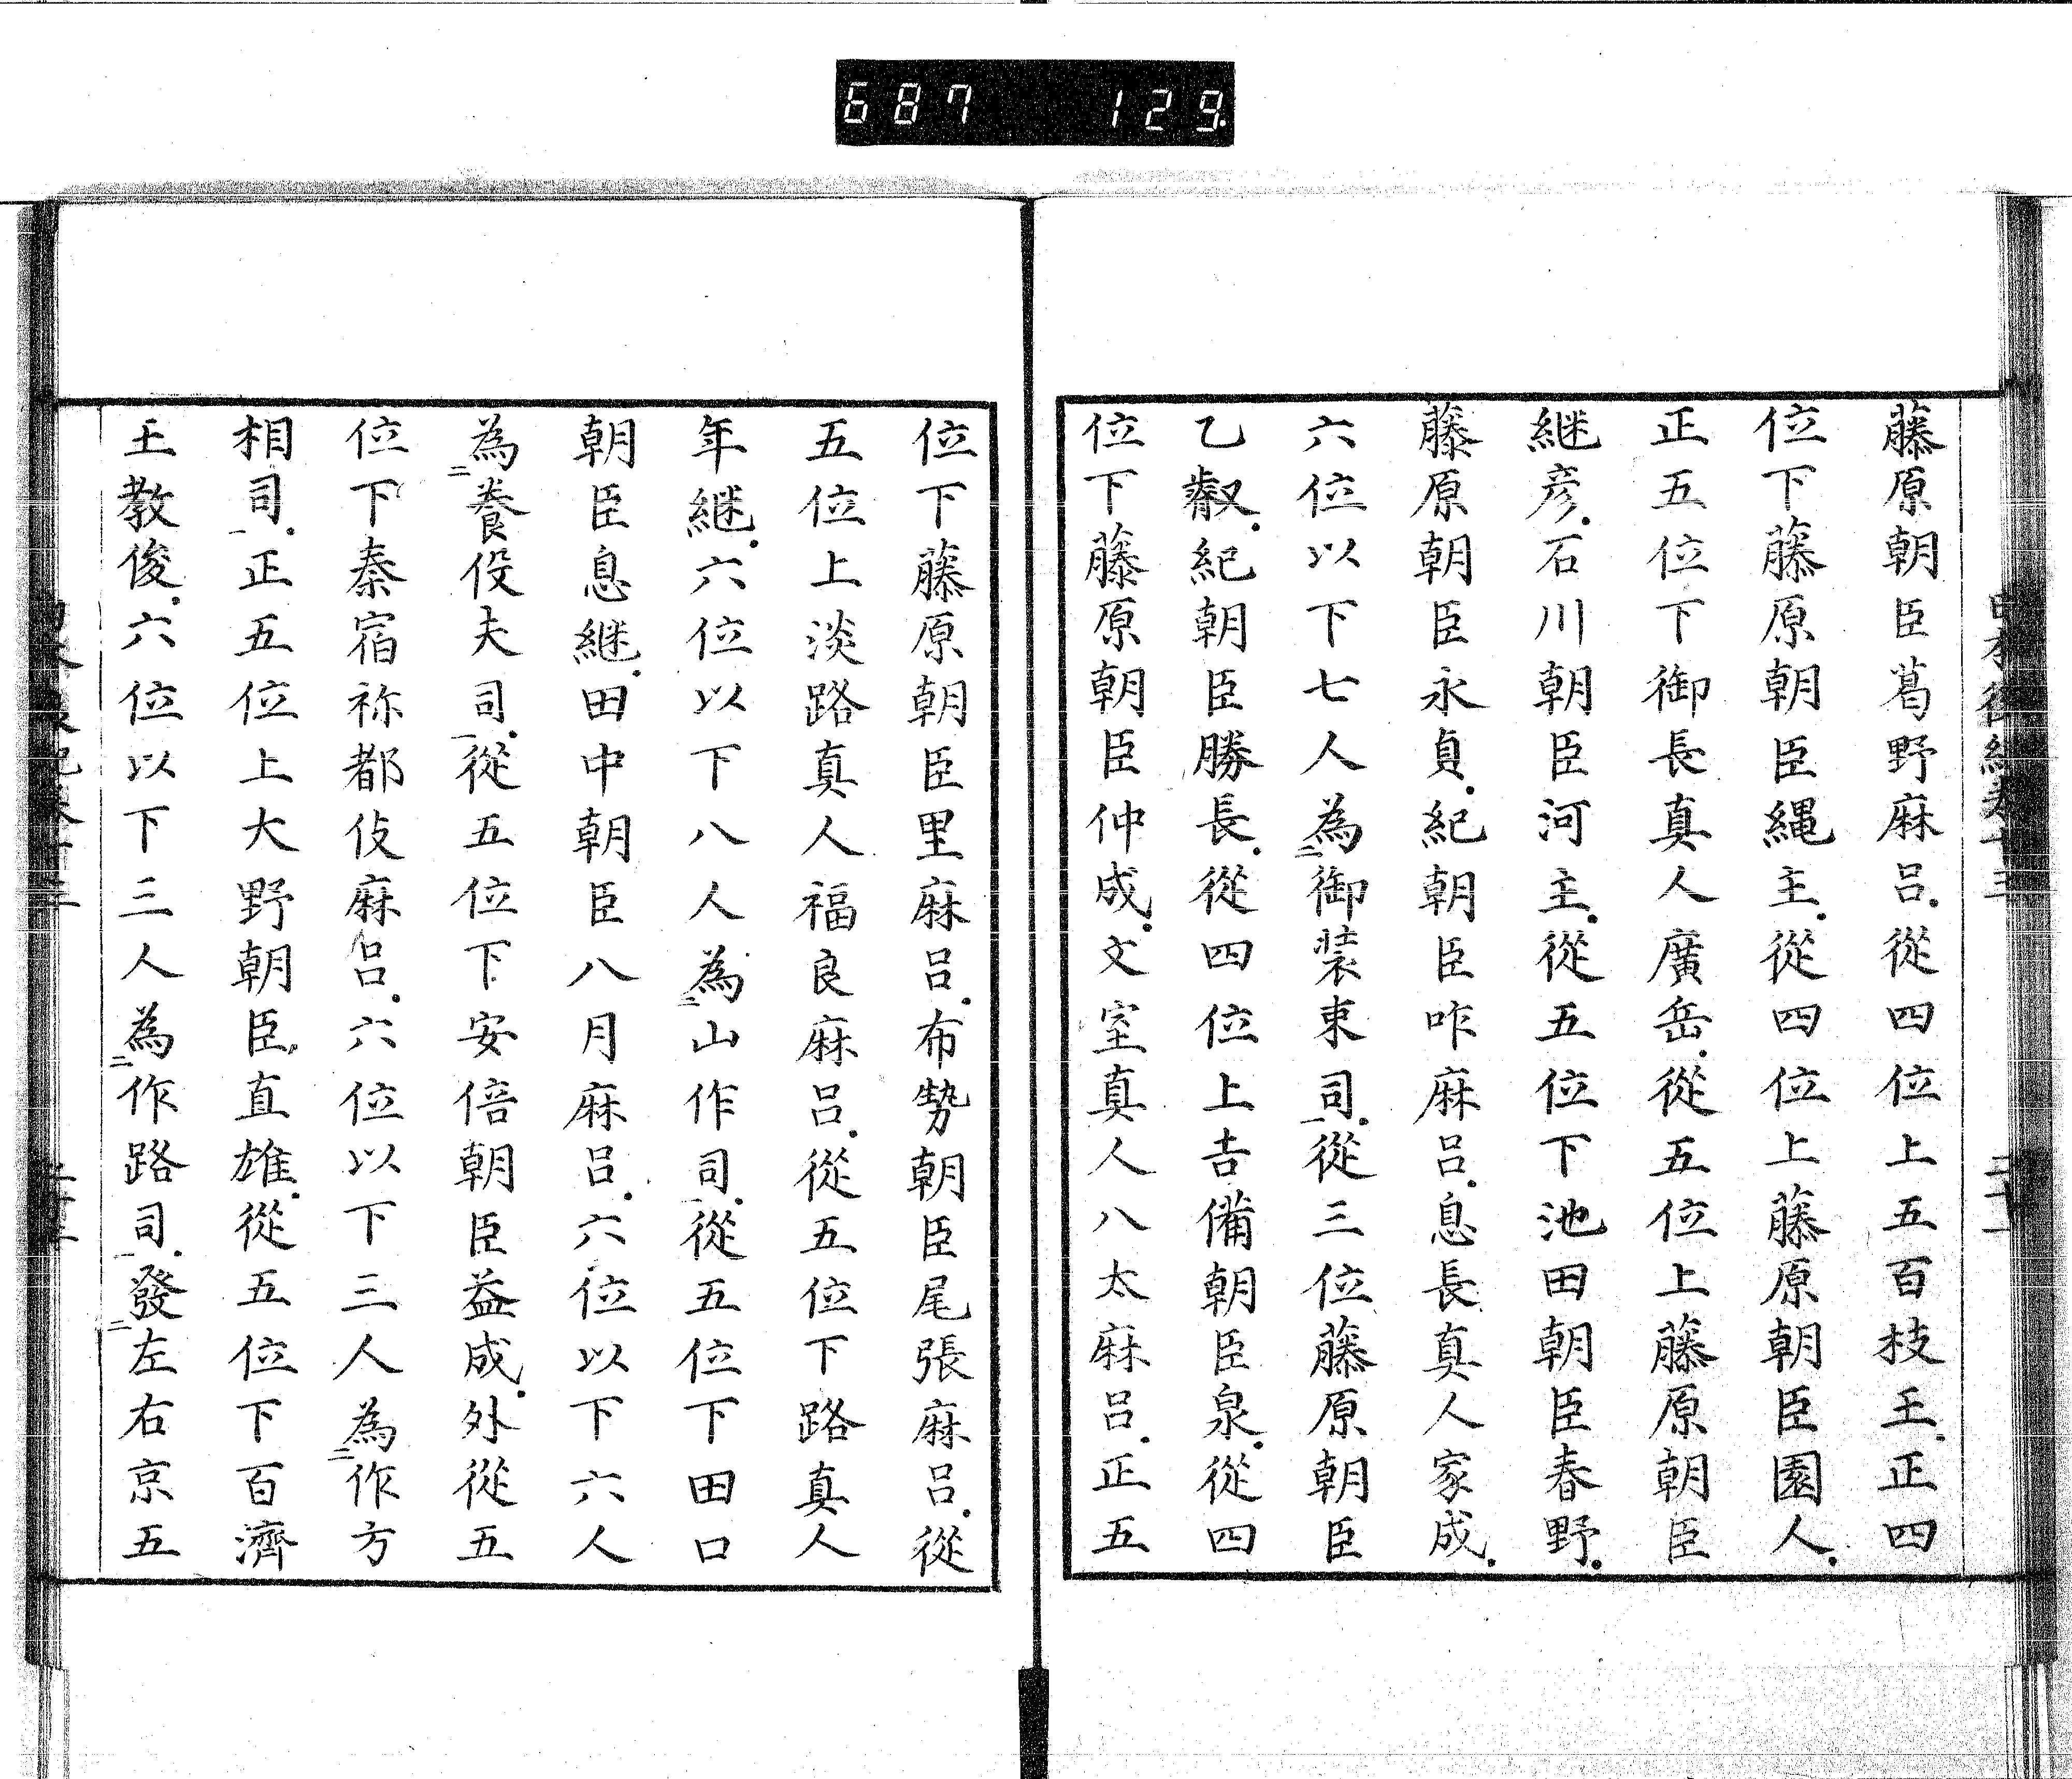 687 129.
藤原朝臣葛野麻呂從四位上五百枝王正四
位下藤原朝臣縄主從四位上藤原朝臣園人
正五位下御長真人廣岳從五位上藤原朝臣
継彦石川朝臣河主從五位下池田朝臣春野
藤原朝臣永貞紀朝臣咋麻呂息長真人家成
六位以下七人為二御装束司一從三位藤原朝臣
乙叡紀朝臣勝長從四位上吉備朝臣泉從四
位下藤原朝臣仲成文室真人八太麻呂正五
位下藤原朝臣里麻呂布勢朝臣尾張麻呂從
五位上淡路真人福良麻呂從五位下路真人
年継六位以下八人為二山作司一從五位下田口
朝臣息継田中朝臣八月麻呂六位以下六人
為二養役夫司一從五位下安倍朝臣益成外從五
位下秦宿祢都伎麻呂六位以下三人為二作方
相司一正五位上大野朝臣直雄從五位下百濟
王教俊六位以下三人為二作路司一發二左右京五